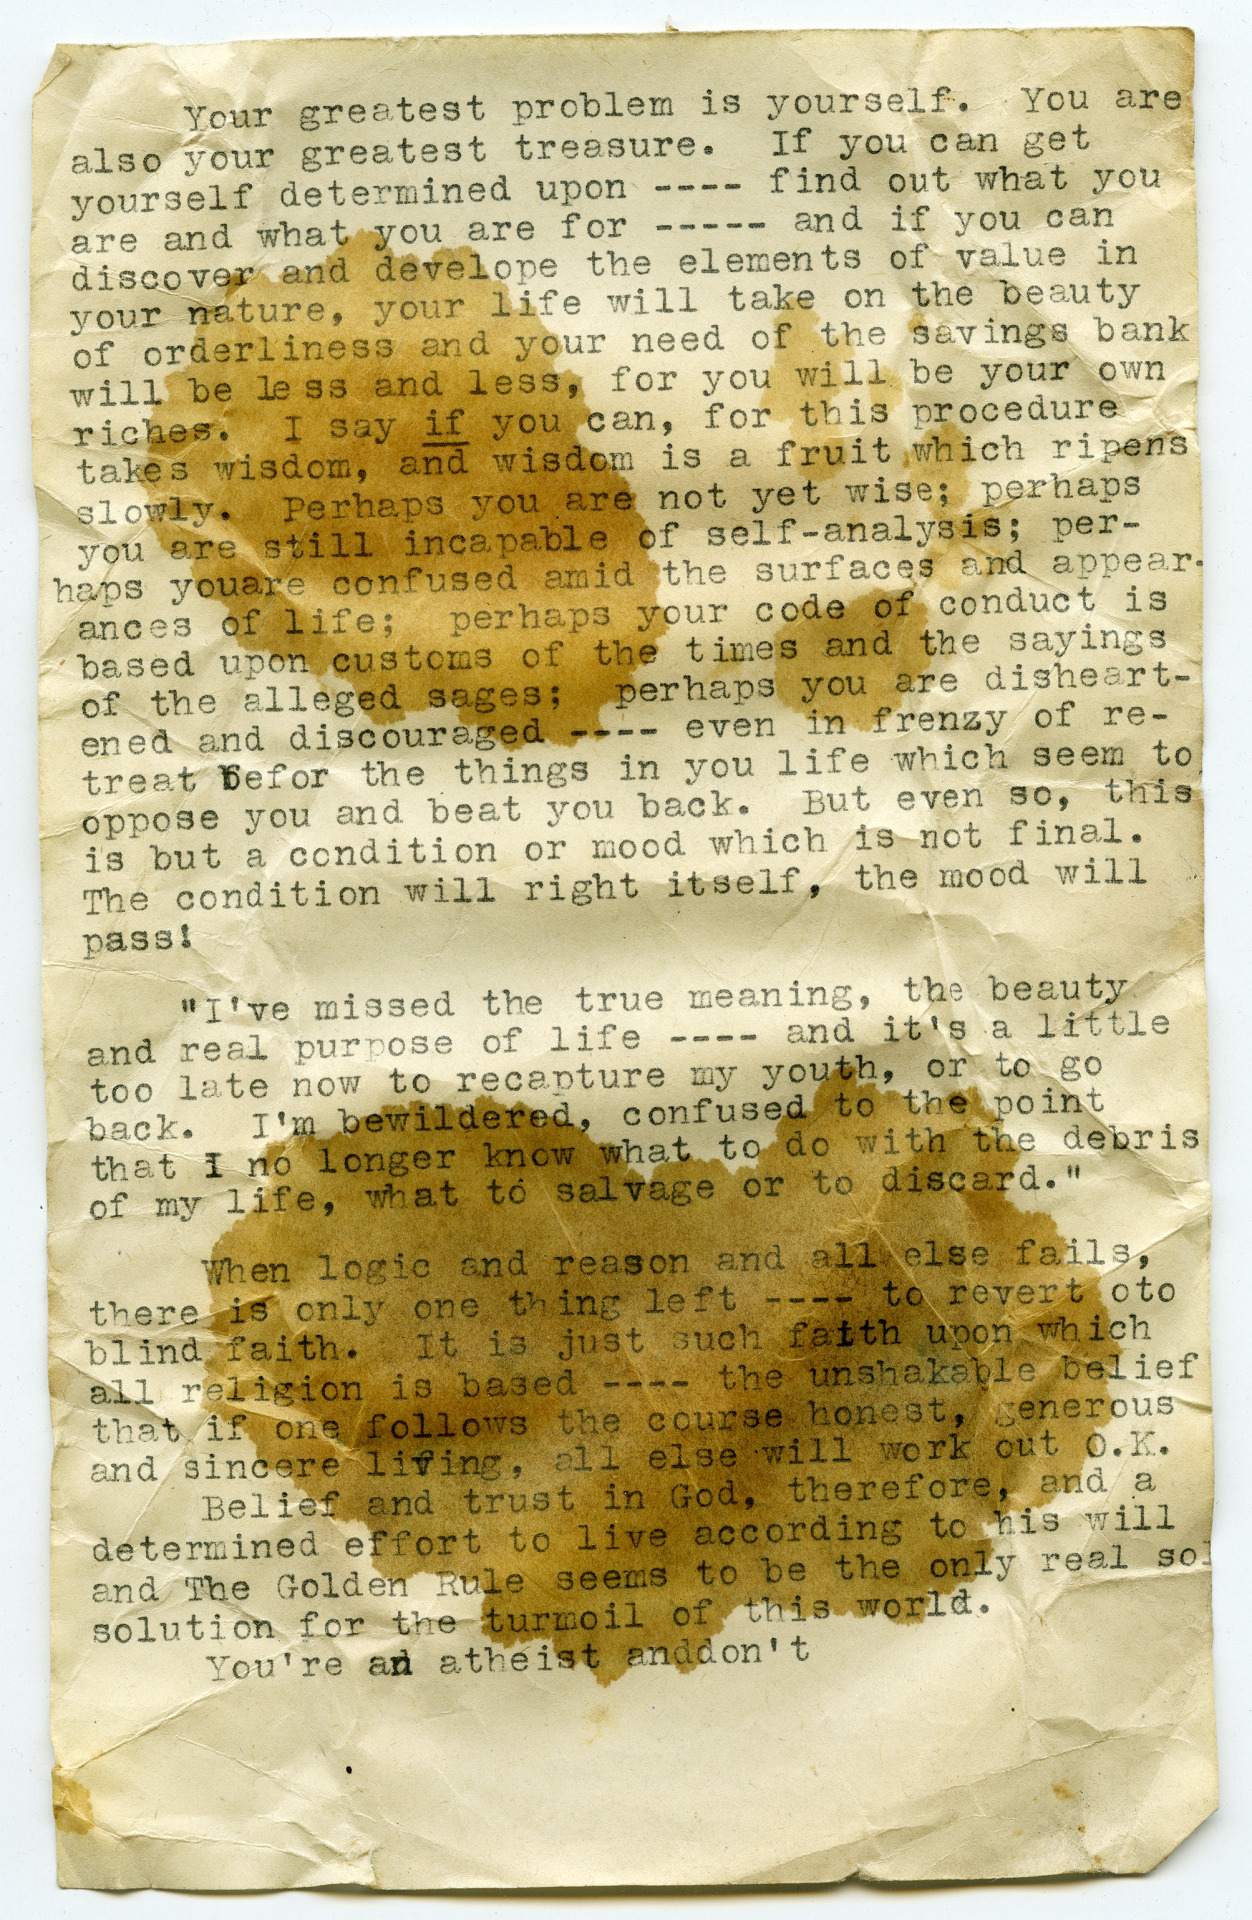 Your greatest problem is yourself.  You are
also your greatest treasure.  If you can get
yourself determined upon ---- find out what you
are and what you are for ----- and if you can
discover and develope the elements of value in
your nature, your life will take on the beauty
of orderliness and your need of the savings bank
will be less and less, for you will be your own
riches.  I say if you can, for this procedure
takes wisdom, and wisdom is a fruit which ripens
slowly.  Perhaps you are not yet wise; perhaps
you are still incapable of self-analysis; per-
haps youare confused amid the surfaces and appear-
ances of life;  perhaps your code of conduct is
based upon customs of the times and the sayings
of the alleged sages;  perhaps you are disheart-
ened and discouraged ---- even in frenzy of re-
treat befor the things in you life which seem to
oppose you and beat you back.  But even so, this
is but a condition or mood which is not final.
The condition will right itself, the mood will
pass!
"I've missed the true meaning, the beauty
and real purpose of life ---- and it's a little
too late now to recapture my youth, or to go
back.  I'm bewildered, confused to the point
that I no longer know what to do with the debris
of my life, what to salvage or to discard."
When logic and reason and all else fails,
there is only one thing left ---- to revert oto
blind faith.  It is just such faith upon which
all religion is based ---- the unshakable belief
that if one follows the course honest, generous
and sincere living, all else will work out O.K.
Belief and trust in God, therefore, and a
determined effort to live according to his will
and The Golden Rule seems to be the only real sol
solution for the turmoil of this world.
You're an atheist anddon't